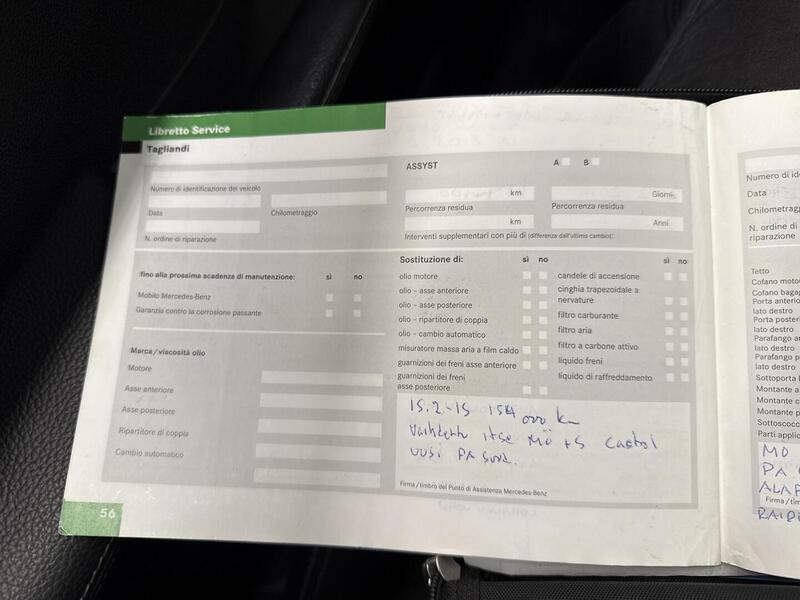 Libretto Service
Tagliandi
Numero di identificazione del veicolo
Data
Chilometraggio
N. ordine di riparazione
ASSYST
A
B
km
Giorni
Percorrenza residua
Percorrenza residua
km
Anni
Interventi supplementari con più di (differenza dall'ultimo cambio):
fino alla prossima scadenza di manutenzione: sì no
Mobilo Mercedes-Benz
Garanzia contro la corrosione passante
Marca/viscosità olio
Motore
Asse anteriore
Asse posteriore
Ripartitore di coppia
Cambio automatico
Sostituzione di: sì no
olio motore
olio – asse anteriore
olio – asse posteriore
olio – ripartitore di coppia
olio – cambio automatico
misuratore massa aria a film caldo
guarnizioni dei freni asse anteriore
guarnizioni dei freni
asse posteriore
sì no
candele di accensione
cinghia trapezoidale a
nervature
filtro carburante
filtro aria
filtro a carbone attivo
liquido freni
liquido di raffreddamento
15.2-15 154 000 km
vaihdettu itse MÖ +S Castrol
uusi PA
Firma/timbro del Punto di Assistenza Mercedes-Benz
56
Numero di ide
Data
Chilometraggio
N. ordine di
riparazione
Tetto
Cofano moto
Cofano baga
Porta anterio
lato destro
Porta poster
lato destro
Parafango an
lato destro
Parafango p
lato destro
Sottoporta l
Montante a
Montante c
Montante p
Sottoscocc
Parti applic
MÖ
PA
Firma/tim